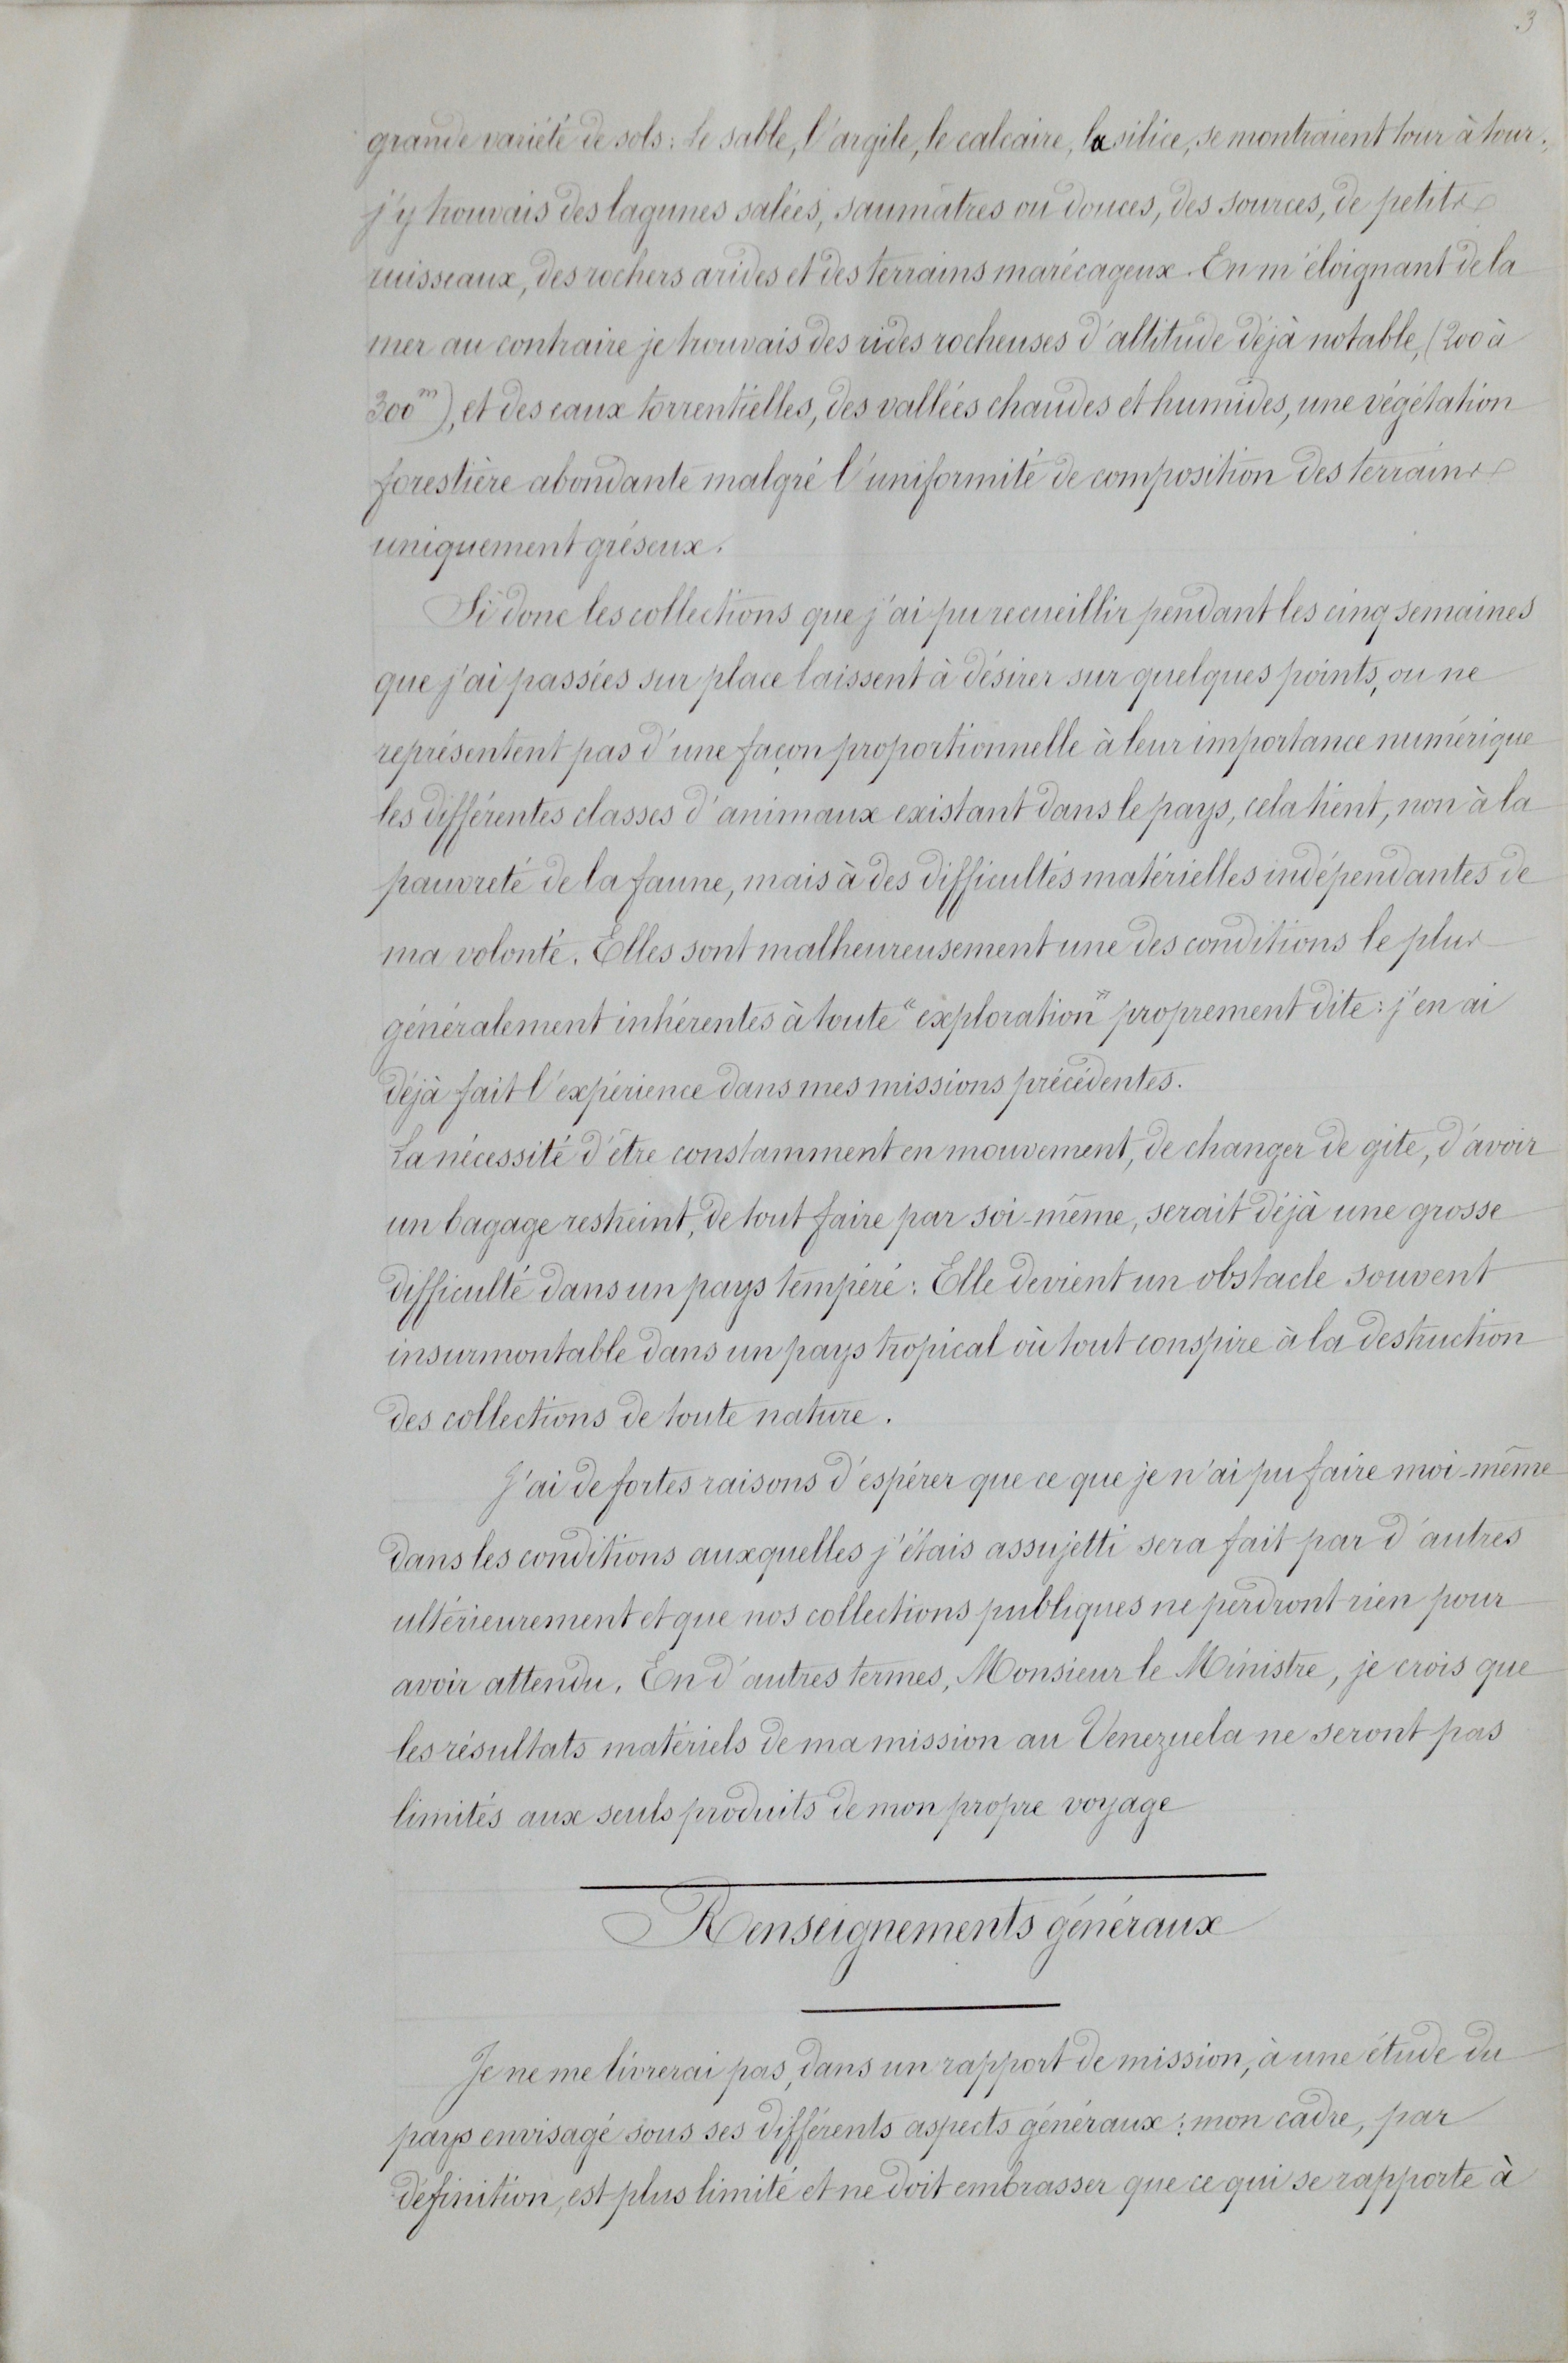 3
grande variété de sols: le sable, l'argile, le calcaire, la silice, se montraient tour à tour;
j'y trouvais des lagunes salées, saumâtres ou douces, des sources, de petits
ruisseaux, des rochers arides et des terrains marécageux. En m'éloignant de la
mer au contraire je trouvais des rides rocheuses d'altitude déjà notable, (200 à
300m), et des eaux torrentielles, des vallées chaudes et humides, une végétation
forestière abondante malgré l'uniformité de composition des terrains
uniquement gréseux.
Si donc les collections que j'ai pu recueillir pendant les cinq semaines
que j'ai passées sur place laissent à désirer sur quelques points, ou ne
représentent pas d'une façon proportionnelle à leur importance numérique
les différentes classes d'animaux existant dans le pays, cela tient, non à la
pauvreté de la faune, mais à des difficultés matérielles indépendantes de
ma volonté. Elles sont malheureusement une des conditions le plus
généralement inhérentes à toute "exploration" proprement dite: j'en ai
déjà fait l'expérience dans mes missions précédentes.
La nécessité d'être constamment en mouvement, de changer de gite, d'avoir
un bagage restreint, de tout faire par soi-même, serait déjà une grosse
difficulté dans un pays tempéré: Elle devient un obstacle souvent
insurmontable dans un pays tropical où tout conspire à la destruction
des collections de toute nature.
J'ai de fortes raisons d'espérer que ce que je n'ai pu faire moi-même
dans les conditions auxquelles j'étais assujetti sera fait par d'autres
ultérieurement et que nos collections publiques ne perdront rien pour
avoir attendu. En d'autres termes, Monsieur le Ministre, je crois que
les résultats matériels de ma mission au Venezuela ne seront pas
limités aux seuls produits de mon propre voyage
Renseignements généraux
Je ne me livrerai pas, dans un rapport de mission, à une étude du
pays envisagé sous ses différents aspects généraux: mon cadre, par
définition, est plus limité et ne doit embrasser que ce qui se rapporte à